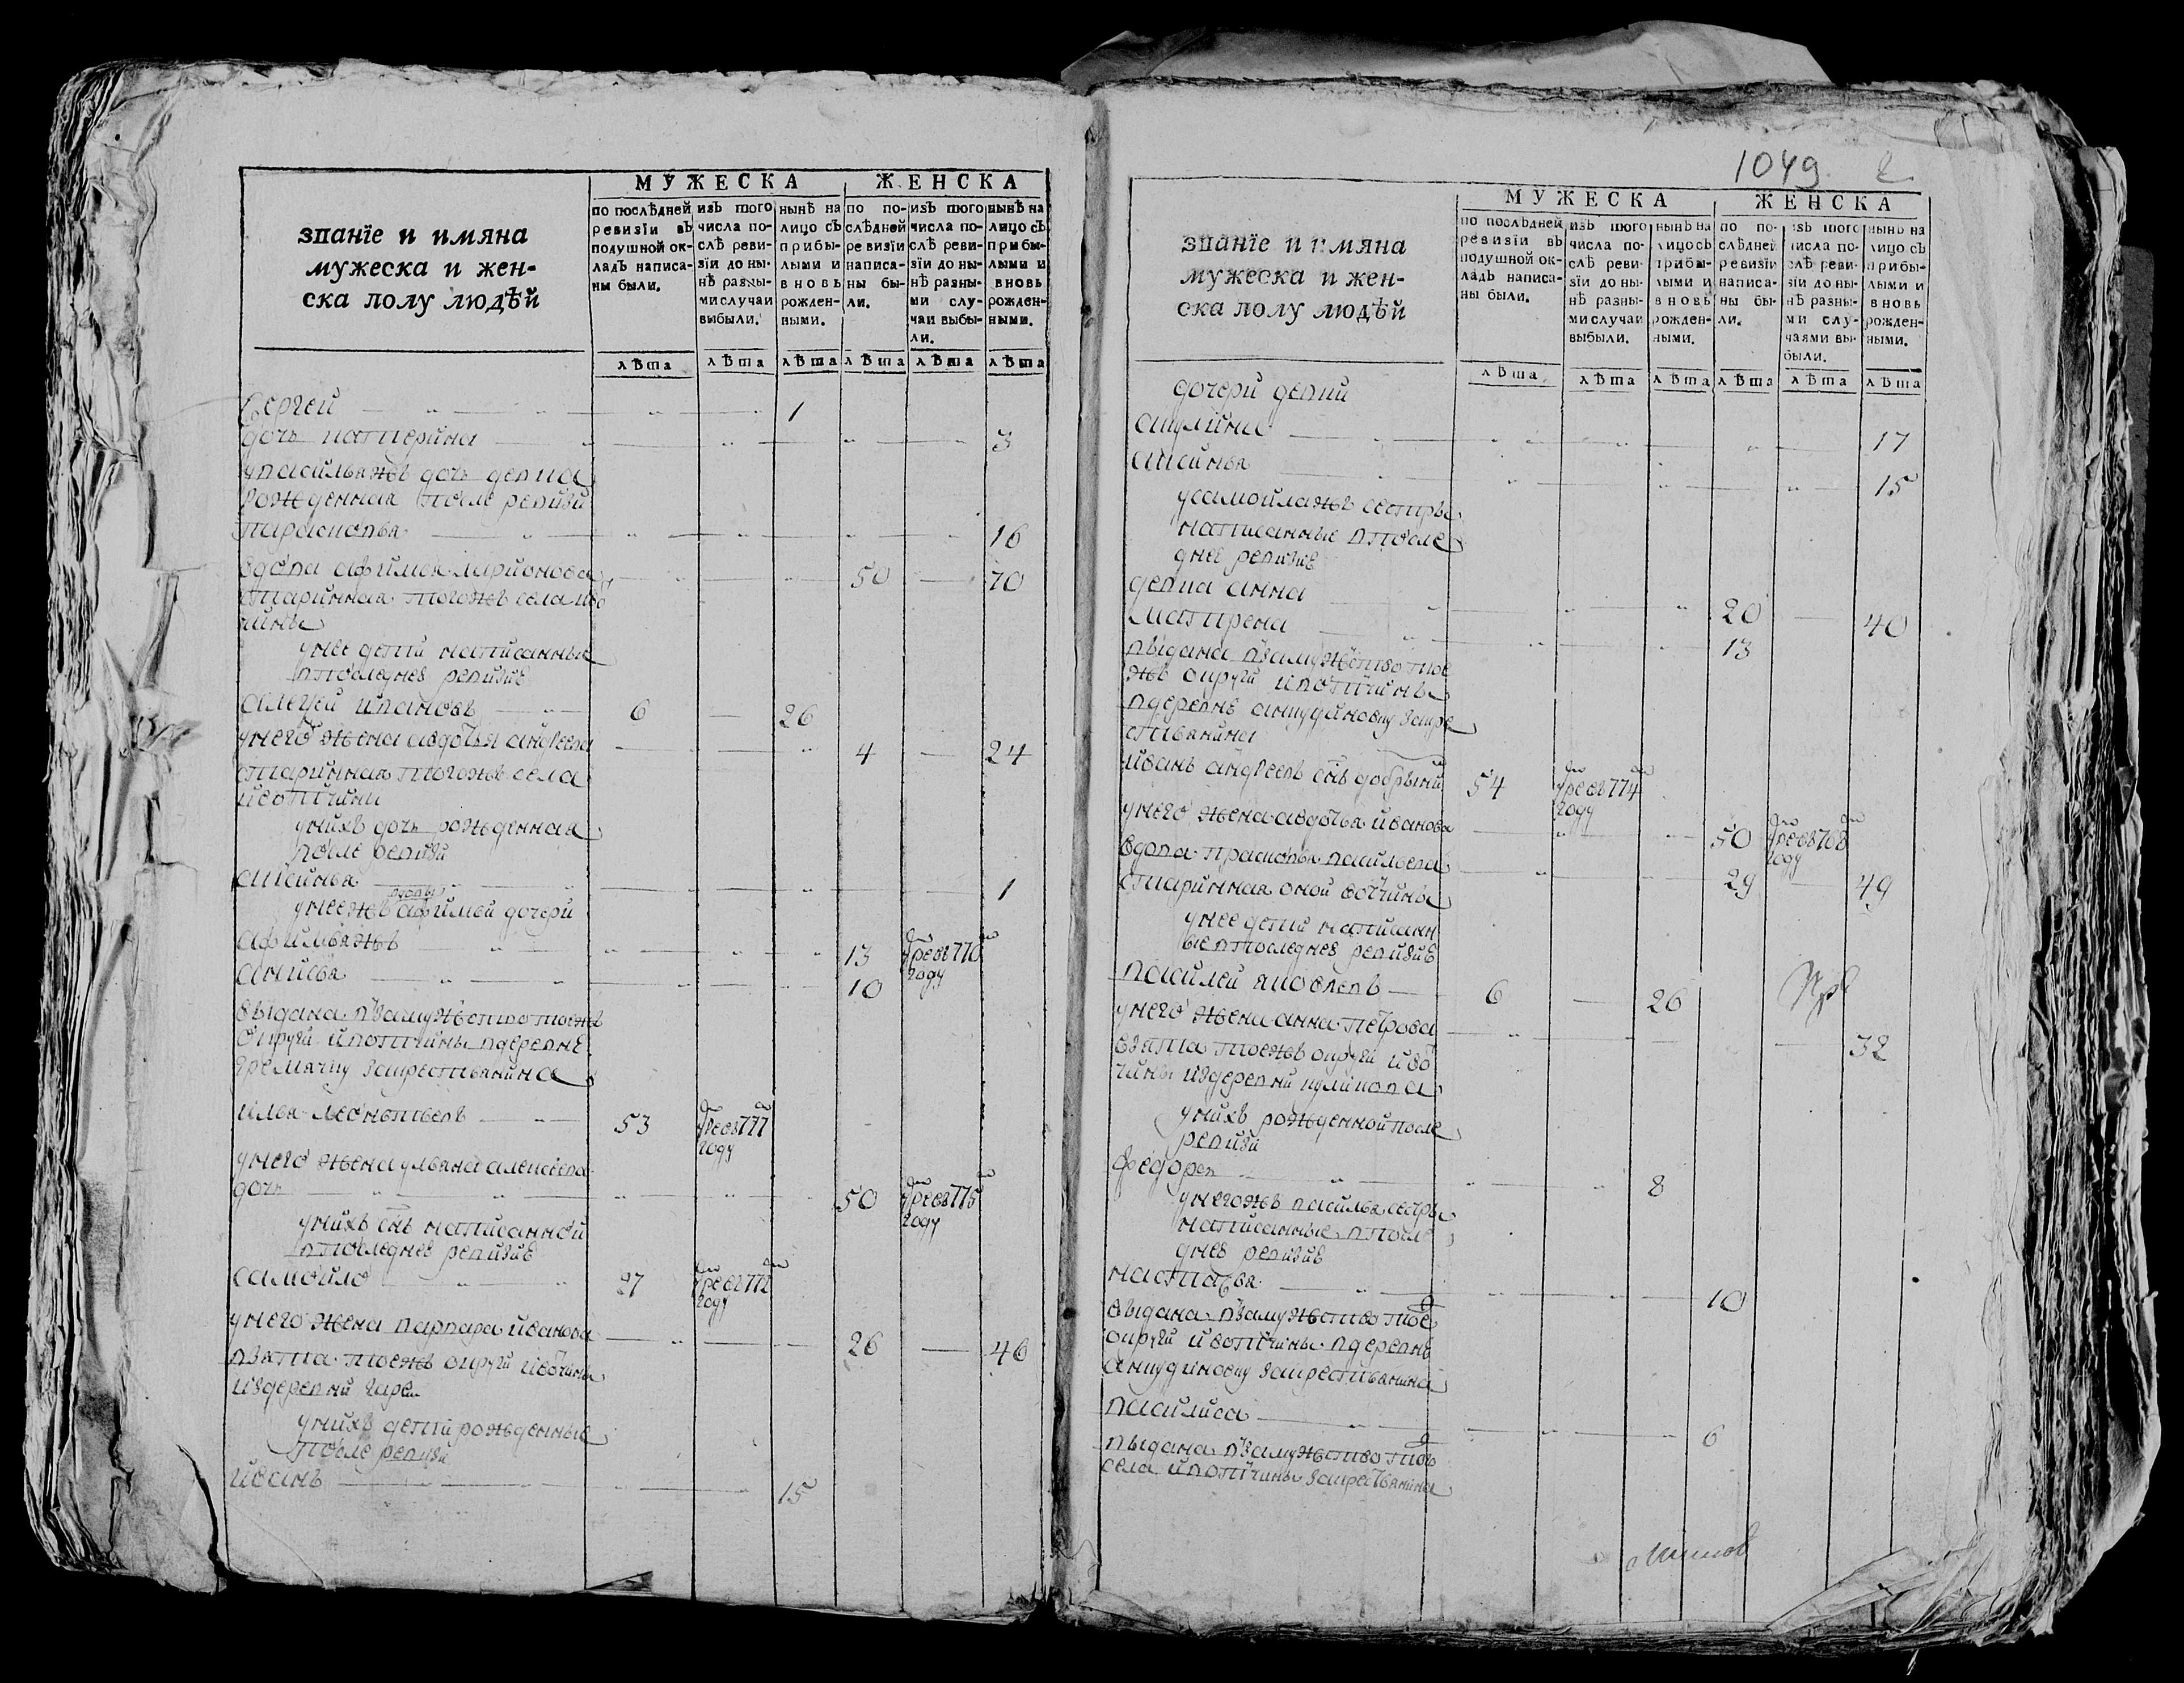 МУЖЕСКА ЖЕНСКА
званїе и имяна
мужеска и жен-
ска полу людѣй
по послѣдней
ревизїи въ
подушной ок-
ладъ написа-
ны были.
изъ того
числа по-
слѣ реви-
зїи до ны-
нѣ разны-
ми случаи
выбыли.
нынѣ на
лицо съ
прибы-
лыми и
вновь
рожден-
ными.
по по-
слѣдней
ревизїи
написа-
ны бы-
ли.
изъ того
числа по-
слѣ реви-
зїи до ны-
нѣ разны-
ми слу-
чаи выбы-
ли.
нынѣ на
лицо съ
прибы-
лыми и
вновь
рожден-
ными.
лѣта лѣта лѣта лѣта лѣта лѣта
сергей 1
дочь катерина 3
у василья жъ дочь девка
рожденная после ревизи
парасковья 16
вдова афимья ларионова 50 70
старинная того жъ села во
чины
у нее дети написанные
в последнеѣ ревизиѣ
алексей ивановъ 6 26
у него жена авдотья андреева 4 24
старинная того жъ села
и вотчины
у нихъ дочь рожденная
после ревизи
аксинья 1
у нее жъ вдовы афимьи дочери
афимья жъ 13 умре въ 770
году
анисья 10
выдана в замужество тоежъ
округи и вотчины в деревне
гремячку за крестьянина
илья леонтьевъ 53 умре въ 777
году
у него жена ульяна алексеева
дочь 50 умре въ 775
году
у нихъ снъ написанной
в последнеѣ ревизиѣ
самойло 27 умре въ 772
году
у него жена варвара иванова 26 46
взята тоежъ округи и вотчины
из деревни
у нихъ дети рожденные
после ревизи
иванъ 15
1049 2
МУЖЕСКА ЖЕНСКА
званїе и имяна
мужеска и жен-
ска полу людѣй
по послѣдней
ревизїи въ
подушной ок-
ладъ написа-
ны были.
изъ того
числа по-
слѣ реви-
зїи до ны-
нѣ разны-
ми случаи
выбыли.
нынѣ на
лицо съ
прибы-
лыми и
вновь
рожден-
ными.
по по-
слѣдней
ревизїи
написа-
ны бы-
ли.
изъ того
числа по-
слѣ реви-
зїи до ны-
нѣ разны-
ми слу-
чаями вы-
были.
нынѣ на
лицо съ
прибы-
лыми и
вновь
рожден-
ными.
лѣта лѣта лѣта лѣта лѣта лѣта
дочери девки
акулина 17
аксинья 15
у самойла жъ сестры
написанные в после
днеѣ ревизиѣ
девка анна 20 40
матрена 13
выдана в замужество тое
жъ округи и вотчины
в деревне анкудиновку за кре
стьянина
иванъ андреевъ снъ добрыни 54 умре въ 774
году
у него жена авдотья иванова 50 умре въ 768
году
вдова прасковья васильева 29 49
старинная оной вотчины
у нее дети написанн
ые в последнеѣ ревизиѣ
василей яковлевъ 6 26
у него жена анна петрова 32
взята тоежъ округи и во
чины из деревни куликова
у нихъ рожденной после
ревизи
федоръ 8
у него жъ василья сестры
написанные в посл
днеѣ ревизиѣ
настасья 10
выдана в замужество тое
округи и вотчины в деревне
анкудиновку за крестьянина
василиса 6
выдана в замужство тогъ
села и вотчины за крестьянина